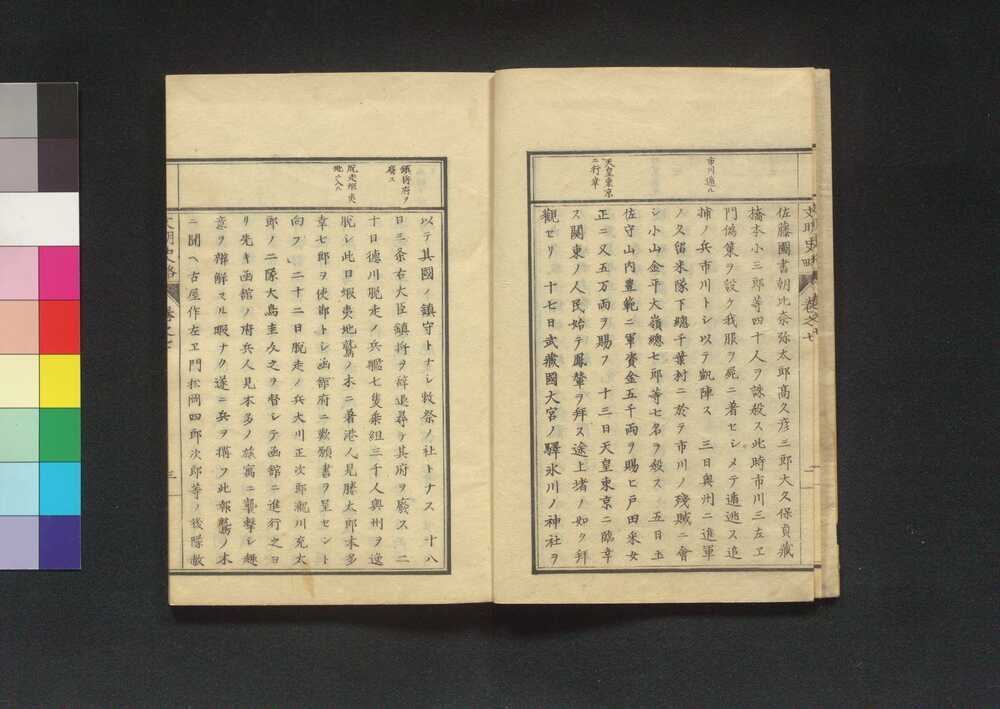 市川遁ル
天皇東京
ニ行幸
文明史略 卷之七 二
佐藤圖書朝比奈弥太郎髙久彦三郎大久保貞藏
橋本小三郎等四十人ヲ誅殺ス此時市川三左ヱ
門偽策ヲ設ク我服ヲ屍ニ著セシメテ遁逃ス追
捕ノ兵市川トシ以テ凱陣ス 三日奥州ニ進軍
ノ久留米隊下總千葉村ニ於テ市川ノ残賊ニ會
シ小山金平大嶺總七郎等七名ヲ殺ス 五日土
佐守山内豊範ニ軍資金五千両ヲ賜ヒ戸田采女
正ニ又五万両ヲ賜フ 十三日天皇東京ニ臨幸
ス関東ノ人民始テ鳳輦ヲ拜ス途上堵ノ如ク拜
觀セリ 十七日武藏國大宮ノ驛氷川ノ神社ヲ
鎮将府ヲ
廢ス
脱走蝦夷
地ニ入ル
以テ其國ノ鎮守トナシ敕祭ノ社トナス 十八
日三条右大臣鎮将ヲ辞退尋テ其府ヲ廢ス 二
十日德川脱走ノ兵艦七隻乗組三千人奥州ヲ逸
脱シ此日蝦夷地鷲ノ木ニ着港人見勝太郎本多
幸七郎ヲ使節トシ函館府ニ歎願書ヲ呈セント
向フ 二十二日脱走ノ兵大川正次郎瀧川充太
郎ノ二隊大鳥圭介之ヲ督シテ函館ニ進行之ヨ
リ先キ函館ノ府兵人見本多ノ旅寓ニ襲撃シ趣
意ヲ辯解スル暇ナク遂ニ兵ヲ構フ此報鷲ノ木
ニ聞ヘ古屋作左ヱ門松岡四郎次郎等ノ後隊敵
文明史略 卷之七 三